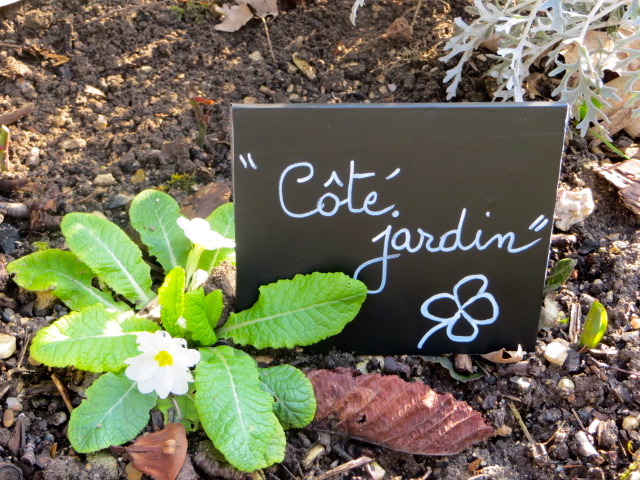 "Côté
jardin"